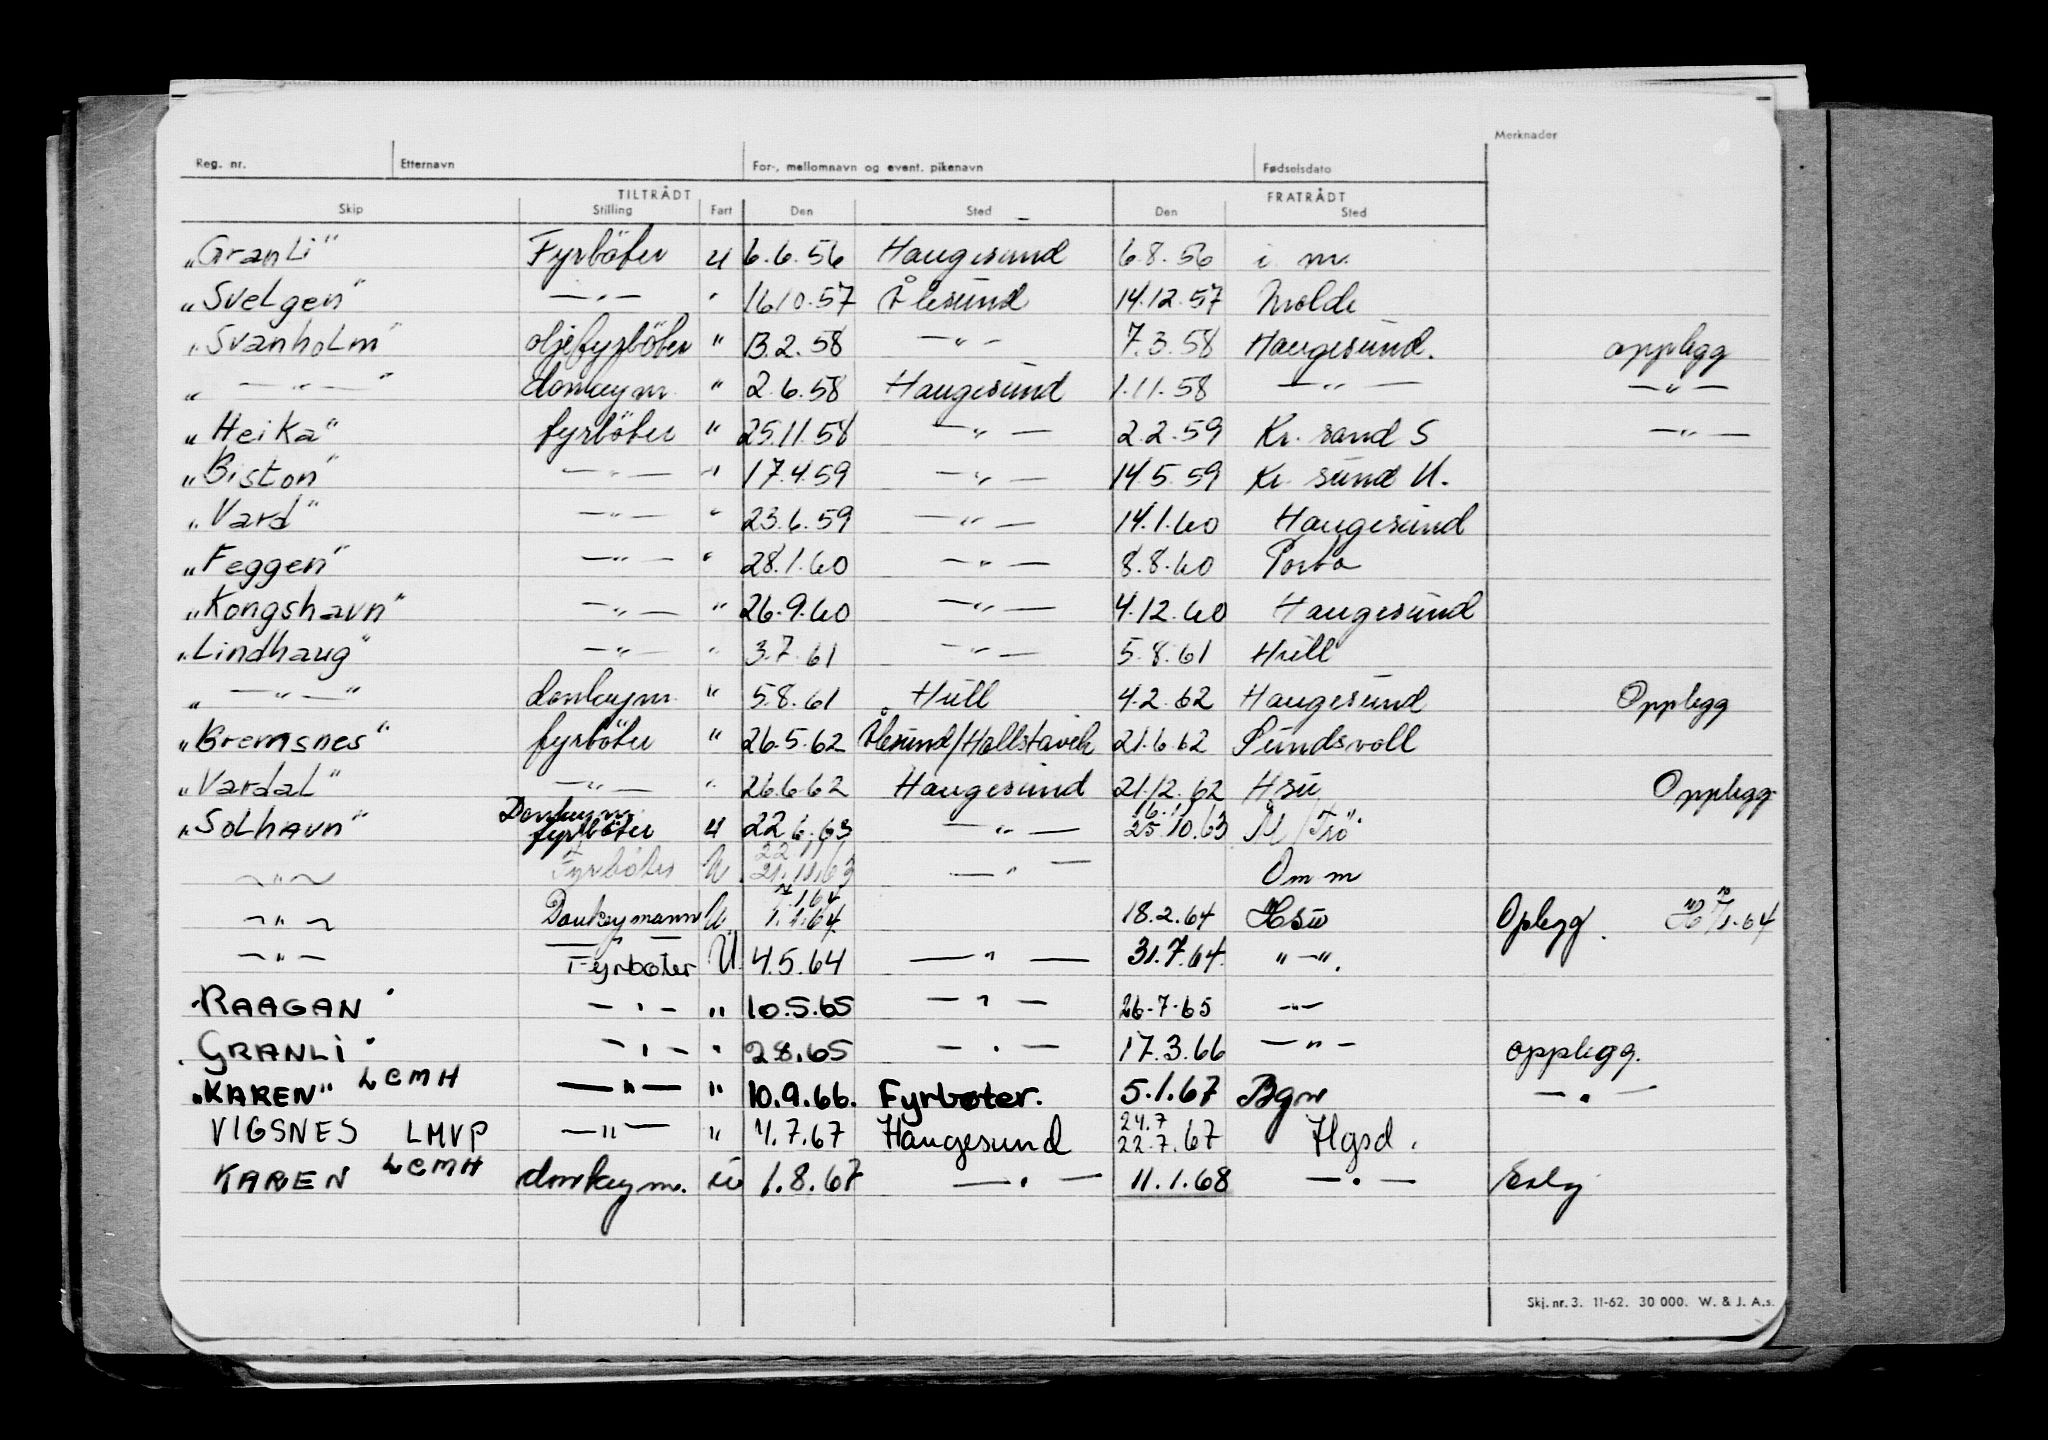 Merknader
Reg. nr. Etternavn For-, mellomnavn og event. pikenavn Fødselsdato
TILTRÅDT FRATRÅDT
Skip Stilling Fart Den Sted Den Sted
„GranLi" Fyrböter U 6.6.56 Haugesund 6.8.56 i. m.
„SveLgen" —„— " 16.10.57 Ålesund 14.12.57 Molde
„SvanhoLm" oljefyrböter " 13.2.58 —"— 7.3.58 Haugesund. opplegg
„—"—" donkeym. " 2.6.58 Haugesund 1.11.58 —"— —"—
„Heika" fyrböter " 25.11.58 —"— 2.2.59 Kr. sand S —"—
„Biston" —"— " 17.4.59 —"— 14.5.59 Kr. sund N.
„Vard" —"— " 23.6.59 —"— 14.1.60 Haugesund
„Feggen" —"— " 28.1.60 —"— 8.8.60 Porto
„Kongshavn" —"— " 26.9.60 —"— 4.12.60 Haugesund
„Lindhaug" —"— " 3.7.61 —"— 5.8.61 Hull
„—"—" donkeym. " 5.8.61 Hull 4.2.62 Haugesund Opplegg
„Bremsnes" fyrböter " 26.5.62 Ålesund/Hallstavik 21.6.62 Sundsvall
„VardaL" —"— " 26.6.62 Haugesund 21.12.62 Hsu Opplegg
„SoLhavn" Donkeym. fyrböter U 22.6.63 —"— 16.11 25.10.63 M/Trö
—"— Fyrböter U 22.11 21.11.63 —"— Om m
—"— Donkeymann U 1.64 1.1.64 18.2.64 Hsu Oplegg. 1.64
—"— Fyrbøter U. 4.5.64 —"— 31.7.64. "—".
"RAAGAN" —"— " 10.5.65 —"— 26-7-65 —"—
"GRANLI" —"— " 2.8.65 —"— 17.3.66 —"— opplegg.
„KAREN" LCMH —"— " 10.9.66. Fyrbøter. 5.1.67 Bgn —"—
VIGSNES LMVP —"— " 4.7.67 Haugesund 24.7 22.7.67 Hgsd.
KAREN LCMH donkeym. U 1.8.67 —"— 11.1.68 —"—
Skj. nr. 3. 11-62. 30 000. W. & J. A.s.